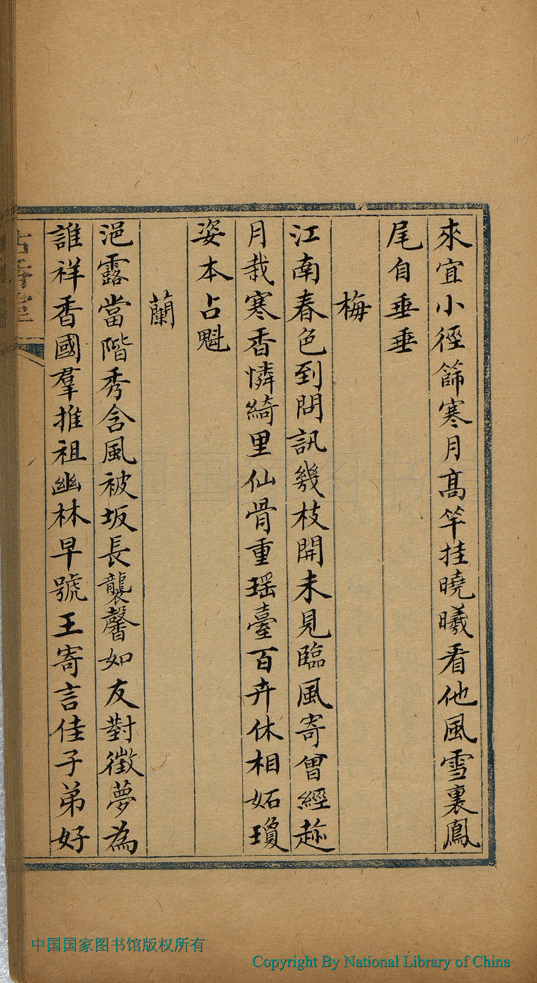 來宜小徑篩寒月高竿挂曉曦看他風雪裏鳳
尾自垂垂
梅
江南春色到問訊幾枝開未見臨風寄曾經趂
月栽寒香憐綺里仙骨重瑶臺百卉休相妬瓊
姿本占魁
蘭
浥露當階秀含風被坂長襲馨如友對徵夢為
誰祥香國羣推祖幽林早號王寄言佳子弟好
中国国家图书馆版权所有
Copyright By National Library of China